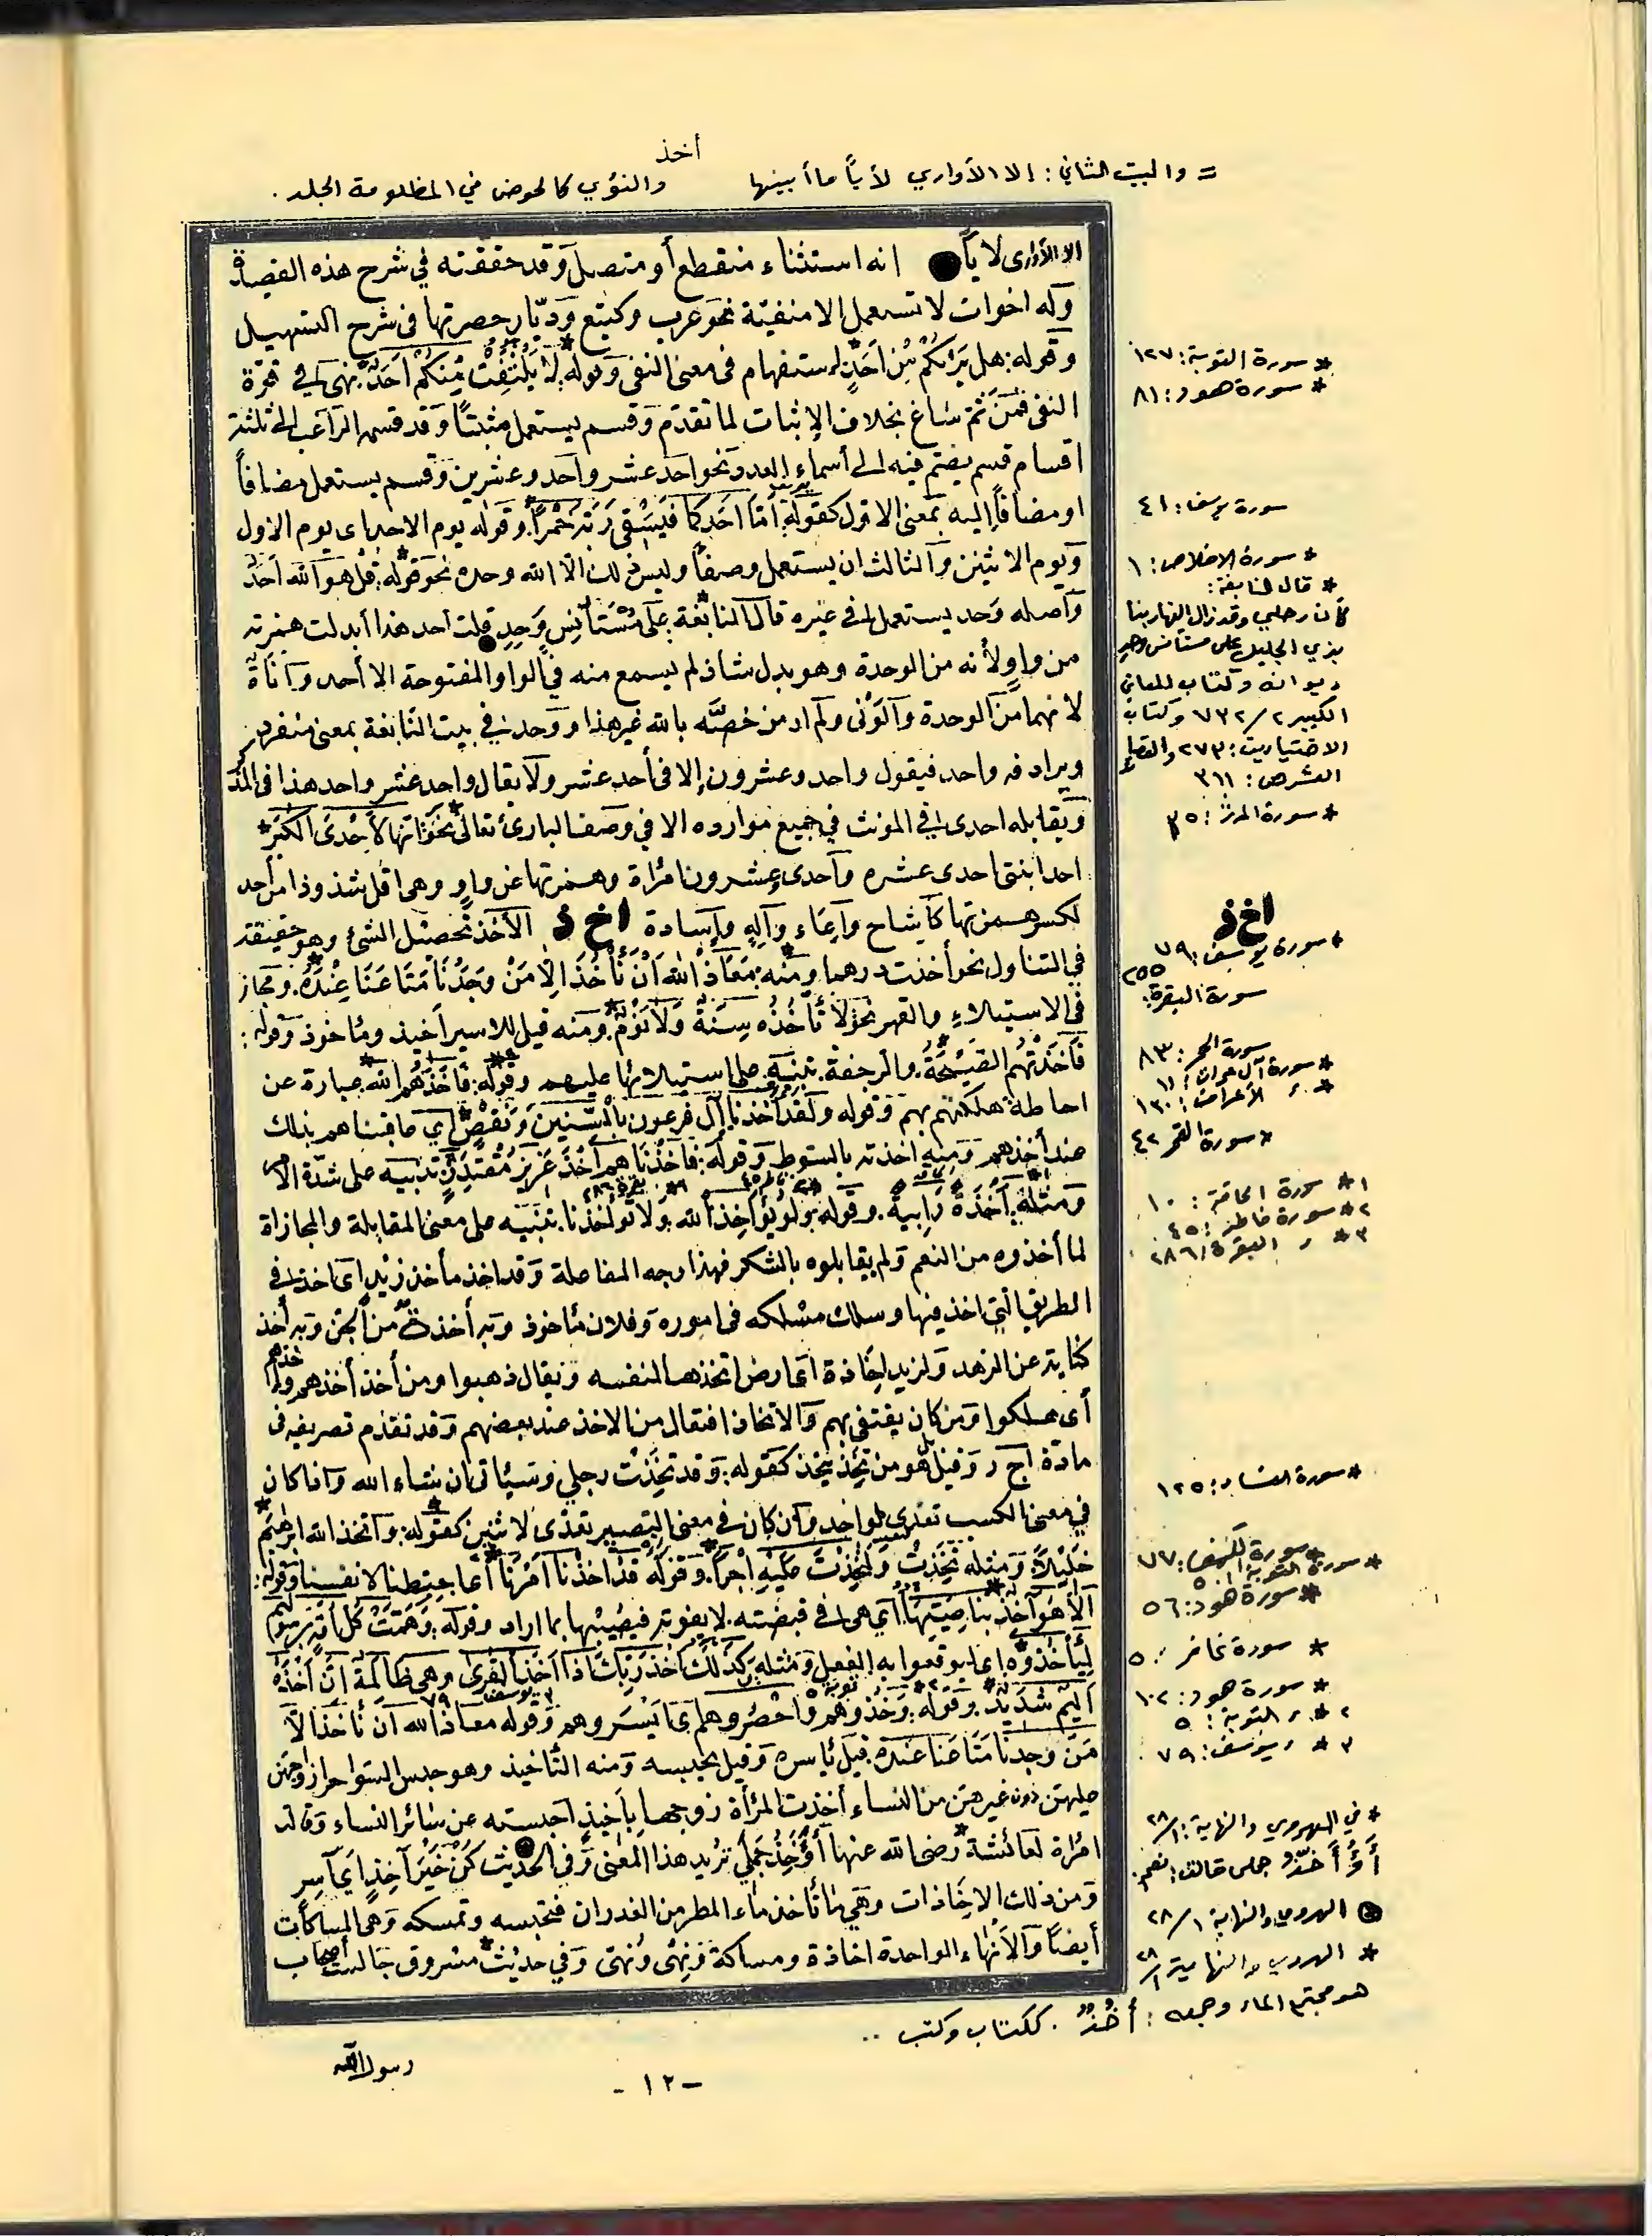 أخذ
= والبيت الثاني: إلا الأواري لأياً ما أبينها والنؤي كالحوض في المظلومة الجلد.
الا الأوارى لاياً انه استثناء منقطع أو متصل وقد حققته في شرح هذه القصيدة
وله اخوات لا تستعمل الا منفيّة نحو عرب وكتيع وديّار حصرتها فى شرح التسهيل
وقوله: هل يَرٰىكُمْ مِّنْ اَحَدٍ* استفهام فى معنى النفى وقوله: لَا يَلْتَفِتْ مِنْكُمْ اَحَدٌ* نهى في قوّة
النفى فمن ثم ساغ بخلاف الإثبات لما تقدّم وقسم يستعمل مثبتاً وقد قسمه الراغب الى ثلثة
اقسام قسم يضم فيه الى أسماء العدد نحو احد عشر واحد وعشرين وقسم يستعمل مضافاً
او مضافاً إليه بمعنى الاول كقوله: اَمَّا اَحَدُكُمَا فَيَسْقِى رَبَّهُ خَمْراً. وقوله يوم الاحد اى يوم الاول
ويوم الاثنين والثالث ان يستعمل وصفاً وليس ذلك الّا الله وحده نحو قوله: قل هو الله احد
وآصله وَحَد يستعمل في غيره قال النابغة: على مُسْتَأْنِسٍ وَحِدِ قلت أحد هذا أبدلت همزته
من واو لأنه من الوحدة وهو بدل شاذ لم يسمع منه في الواو المفتوحة الا أحد وآناة
لانهما من الوحدة والونى ولم ار من خصّه بالله غير هذا ووحد في بيت النابغة بمعنى منفرد
ويرادفه واحد فيقول واحد وعشرون إلا في أحد عشر ولا يقال واحد عشر واحد هذا فى المذكر
ويقابله احدى في المونث في جميع موارده الا في وصف البارئ تعالى نحو انها لاحدى الكبر*
احدا بنتى احدى عشره وآحدى وعشرون امراة وهمزتها عن واو وهى اقل شذوذا من أحد
لكسر همزتها كآشاح وآعاء وآلهٍ وإسادة اخ ذ الأخذ تحصيل الشئ وهو حقيقة
في التناول نحو أخذت درهما ومنه: مَعَاذَ الله اَنْ نَأْخُذَ اِلَّا مَنْ وَجَدْنَا مَتَاعَنَا عِنْدَهُ. ومجاز
فى الاستيلاء والقهر نحو: لَا تَأْخُذُه سِنَةٌ وَلَا نَوْمٌ* ومنه قيل للاسير أخيذ ومأخوذ وقوله:
فَاَخَذَتْهُم الصَّيْحَةُ. والرجفة. تنبيه على استيلائها عليهم وقوله: فَأَخَذَهُم الله عبارة عن
احاطة هلكتهم بهم وقوله ولقد أخذنا آل فرعون بالسّنين وَنَقْصٍ* اى عاقبناهم بذلك
عند أخذهم ومنه اخذته بالسوط وقوله: فاخذناهم أَخْذَ عَزِيزٍ مُقْتَدِرٍ* تنبيه على شدّة الامر
ومثله: أَخْذَةً رَابِيةً. وقوله: ولو يُؤَاخِذ الله. ولا تؤاخذنا. تنبيه على معنى المقابلة والمجازاة
لما أخذوه من النعم ولم يقابلوه بالشكر فهذا وجه المفاعلة وقد اخذ مأخذ زيد اى اخذ في
الطريق التي اخذ فيها وسلك مسلكه فى اموره وفلان مأخوذ وبه أخذة من الجن وبه أخذ
كناية عن الرمد ولزيد اِخَاذة اى ارض اتخذها لنفسه ويقال ذهبوا ومن أخذ أخذهم واخذهم
أى سلكوا ومن كان يقتفى بهم والاتخاذ افتعال من الاخذ عند بعضهم وقد تقدّم تصريفه فى
مادّة اج ر وقيل بل هو من تَخِذ يتخذ كقوله: وقد تَخِذَتْ رجلي وسيأتى ان شاء الله واذا كان
في معنى الكسب تعدى لواحد وان كان في معنى التصيير تعدّى لاثنين كقوله: واتخذ الله ابرهيم
خليلاً ومثله تَخَذْتُ وَلَتَخِذْتَ عَلَيْهِ اَجْراً. وقوله قد اخذنا اَمْرَنَا اى احتطنا لانفسنا وقوله:
الا هو آخذ بناصيتها. اى هى في قبضته. لا يفوته فيصيبها بما اراد وقوله: وَهَمَّتْ كل امّة برسولهم
لِيَأْخذُوه اى ليوقعوا به الفعل ومثله: كذلك اخذ ربك اذا اخذ القرى وهى ظالمة انّ اَخْذَهُ
اَليم شديد. وقوله: وَخذُوهم واحْصُروهم اى ائسروهم وقوله معاذ الله ان نأخذ الا
مَنْ وجدنا متاعنا عنده. قيل نأسره وقيل نحبسه ومنه التأخيذ وهو حبس السواحر ازواجهن
عليهن دون غيرهن من النساء أخذت المرأة زوجها تأخيذا حبسته عن سائر النساء وقالت
امرأة لعائشة* رضى الله عنها اَؤُأَخِّذُ جَمَلي تريد هذا المعنى وفي الحديث كُنْ خَيْرَ آخِذٍ اى آسِر
ومن ذلك الاِخَاذات وهى ما تأخذ ماء المطر من الغدران فتحبسه وتمسكه وهى المساكات
أيضاً والأنهاء الواحدة اخاذة ومساكة ونِهْى ونَهْى وفي حديث* مسروق جالست أصحاب
رسول الله
* سورة التوبة: ١٢٧
* سورة هود: ٨١
سورة يوسف: ٤١
* سورة الاخلاص: ١
* قال النابغة:
كأن رحلي وقد زال النهار بنا
بذي الجليل على مستأنس وحدٍ
ديوانه وكتاب المعاني
الكبير ٢/ ٧٣٢ وكتاب
الاختيارين: ٢٧٣ والقصائد
العشر ص: ٣١١
* سورة المدثر: ٣٥
اخ ذ
* سورة يوسف: ٧٩
سورة البقرة: ٢٥٥
سورة الحجر: ٨٣
* سورة آل عمران: ١١
* ر الأعراف: ١٣٠
* سورة القمر ٤٢
١* سورة الحاقة: ١٠
٢* سورة فاطر: ٤٥
٣* ر البقرة ٢٨٦
* سورة النساء: ١٢٥
* سورة الكهف: ٧٧
* سورة التوبة: ٥٠
* سورة هود: ٥٦
* سورة غافر: ٥
* سورة هود: ١٠٢
٢* ر التوبة: ٥
٣* ر يوسف: ٧٩
* في الهروي والنهاية: ٢٨/١
أَؤُأَخِّذُ جملي قالت: نعم.
الهروي والنهاية ٢٨/١
* الهروي والنهاية ٢٨/١
هو مجتمع الماء وجمعه: أُخُذٌ. ككتاب وكتب ..
- ١٢ -